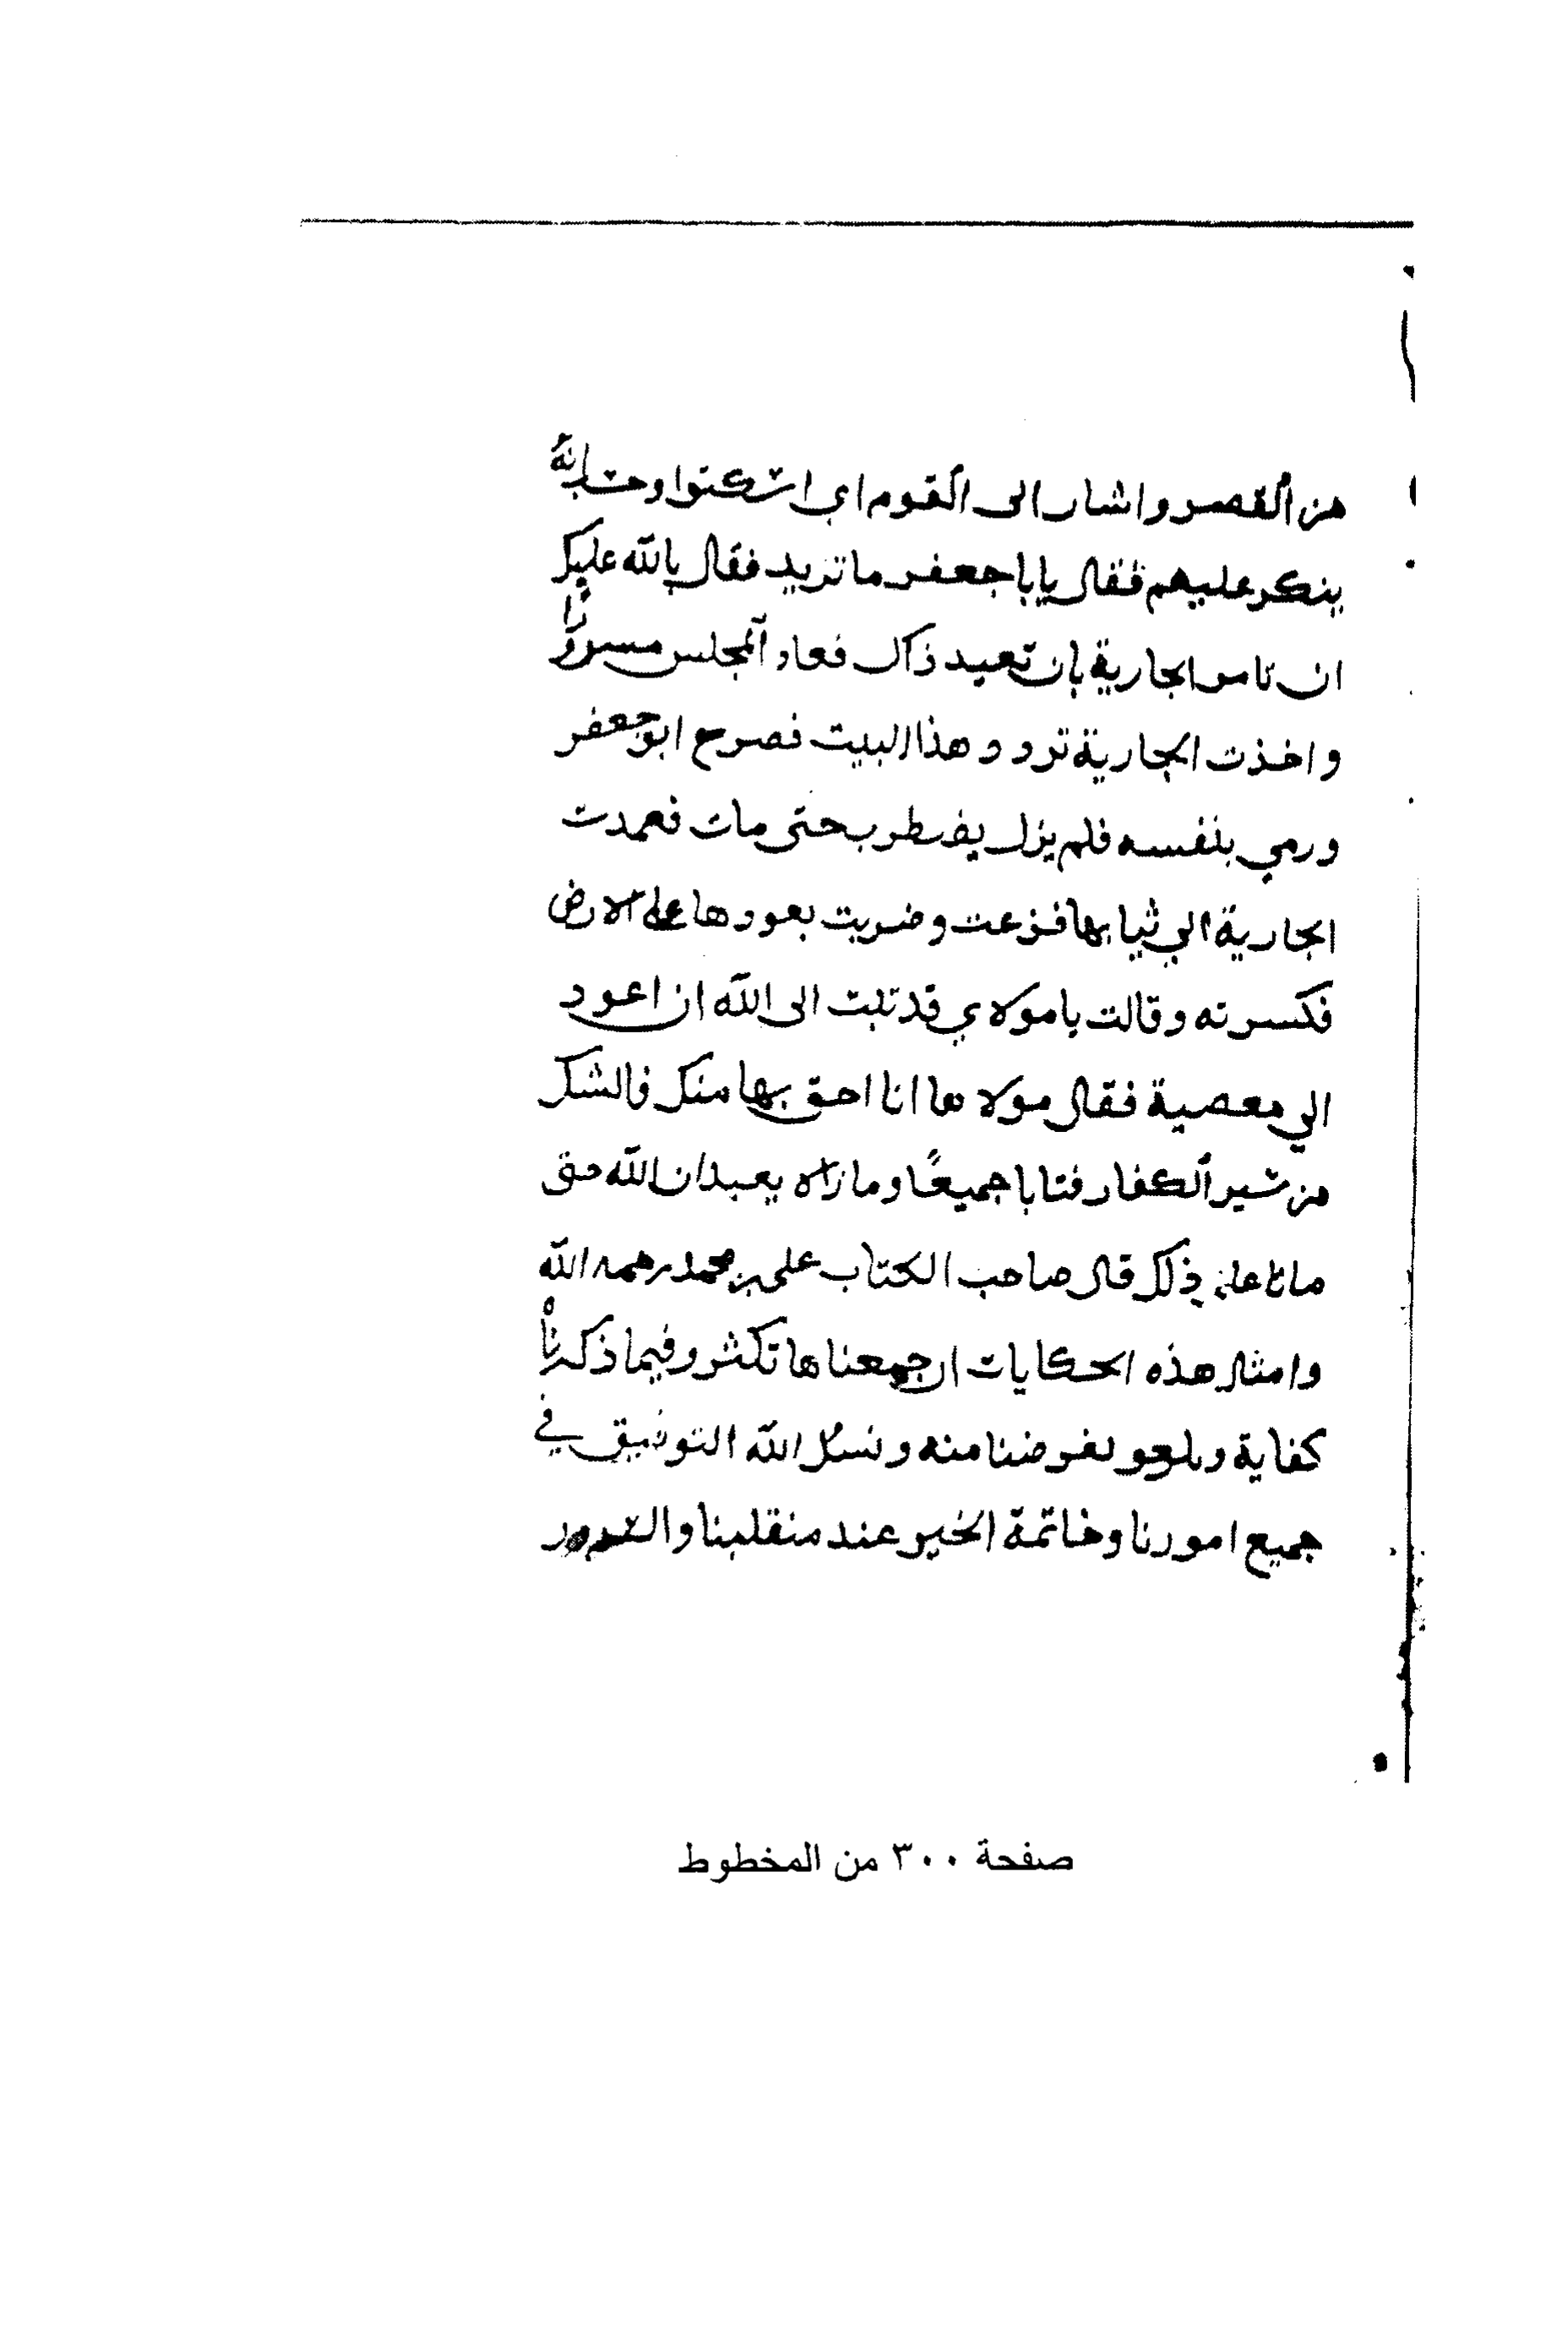 من القصر واشار الى القوم اي اسكتوا وحسبانه
ينكر عليهم فقال يابا جعفر ما تريد فقال بالله عليك
ان تامر الجارية بان تعيد ذاك فعاد المجلس مسرورًا
واخذت الجارية تردد هذا البيت فصرح ابو جعفر
ورمي بنفسه فلم يزل يضطرب حتى مات فعمدت
الجارية الي ثيابها فنزعت وضربت بعودها على الارض
فكسرته وقالت يا مولاي قد تبت الى الله ان اعود
الي معصية فقال مولاها انا احق بها منك فالشكر
من شير الكفار فتابا جميعًا وما زالا يعبدان الله حتى
ماتا على ذلك قال صاحب الكتاب على بن محمد رحمه الله
وامثال هذه الحكايات ان جمعناها تكثر وفيما ذكرناه
كفاية لغرضنا منه ونسئل الله التوفيق في
جميع امورنا وخاتمة الخير عند منقلبنا والسرور
صفحة ٣٠٠ من المخطوط